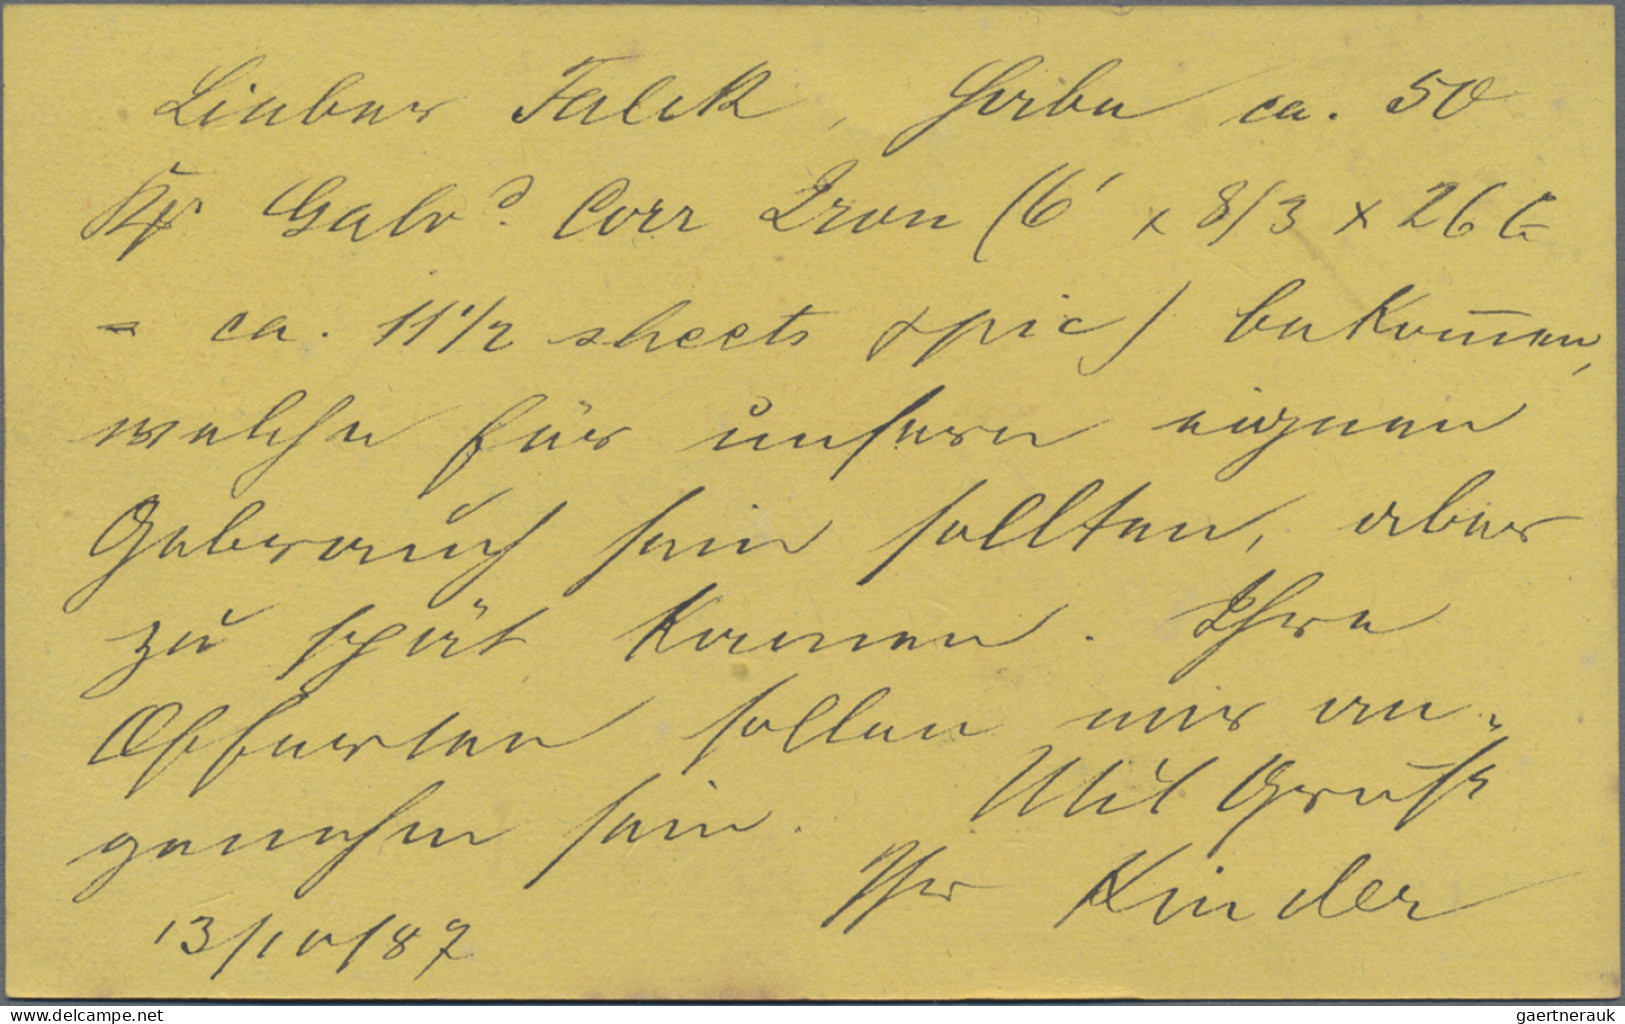 Lieber Falck, Habe ca. 50
Galvd. Corr Iron (6' x 8/3 x 26 G
= ca. 11 1/2 sheets pic) bekom̅en,
welche für unsern eignen
Gebrauch sein sollten, aber
zu spät kamen. Ihre
Offerten sollen mir an-
genehm sein. Mit Gruß
Ihr Kinder
13/10/87
www.delcampe.net
gaertnerauk